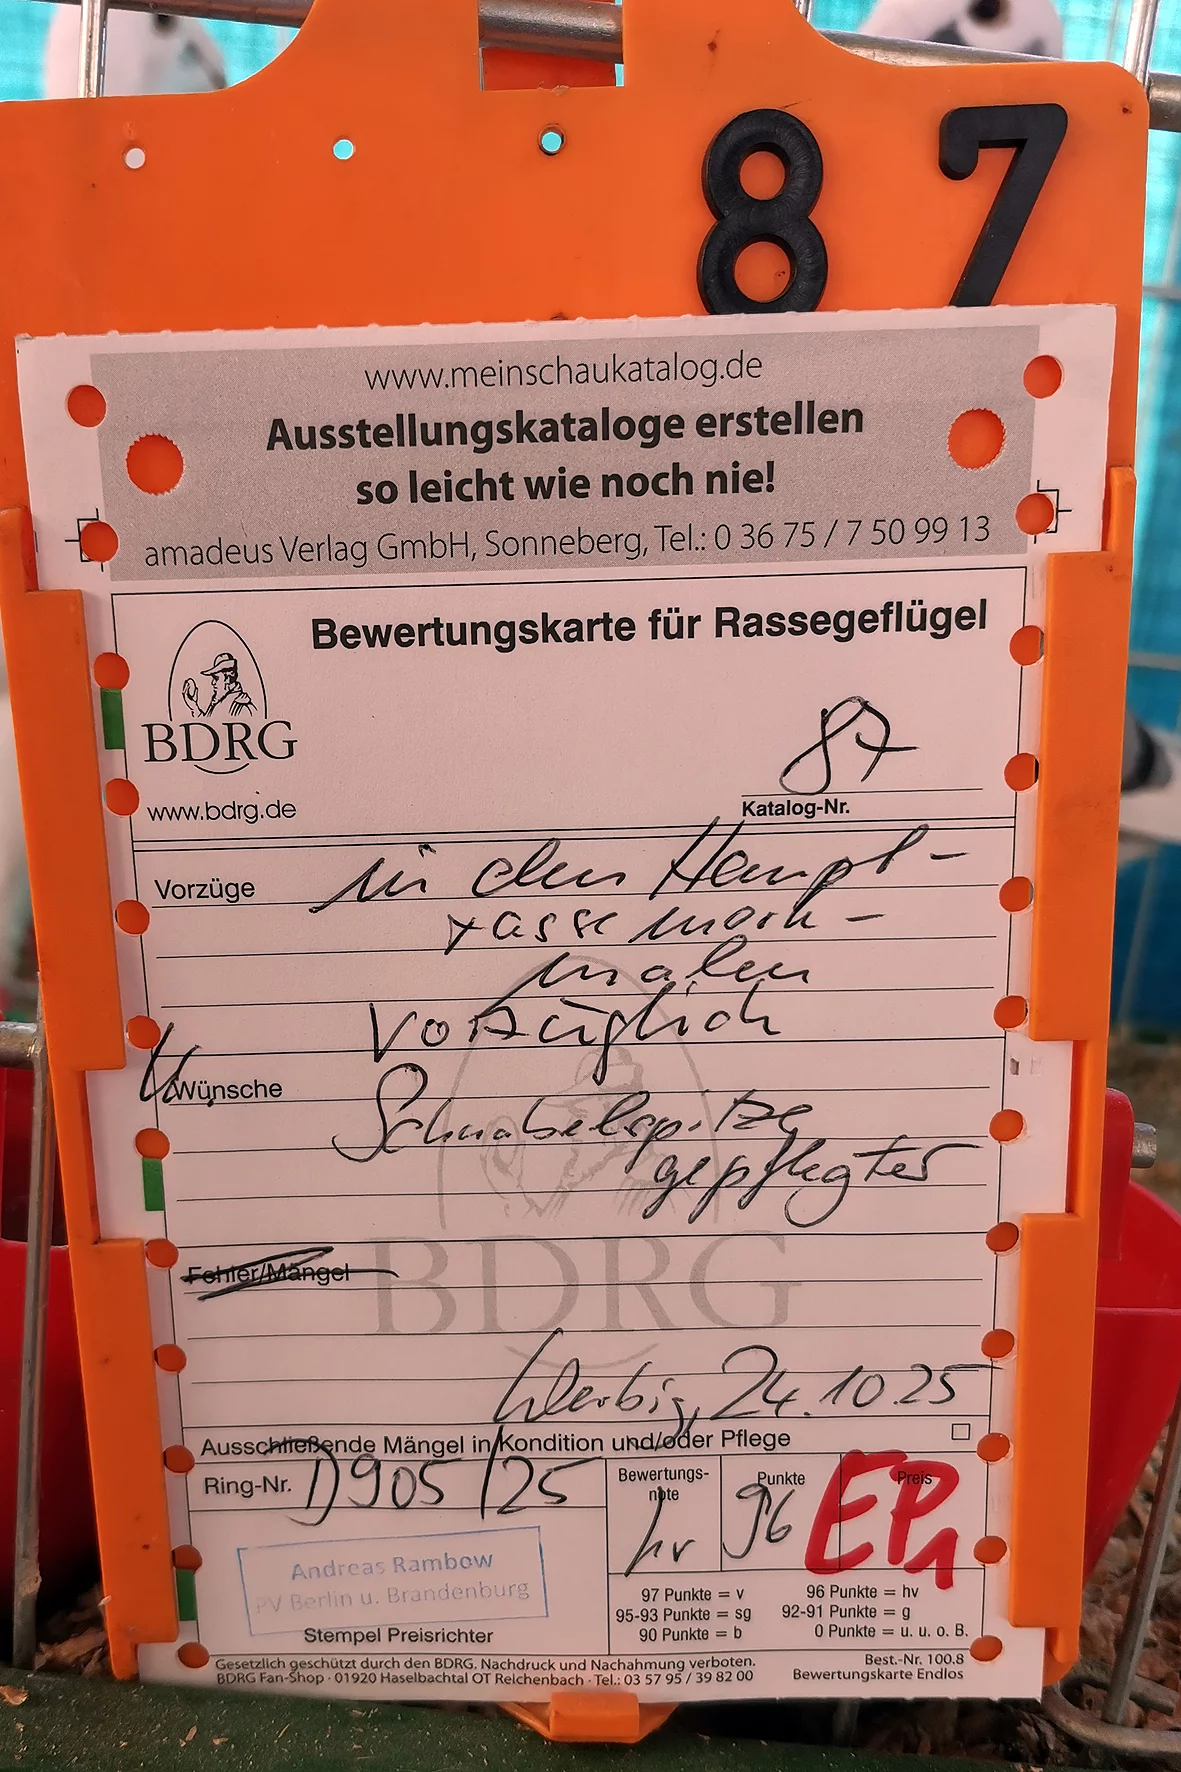 87
www.meinschaukatalog.de
Ausstellungskataloge erstellen
so leicht wie noch nie!
amadeus Verlag GmbH, Sonneberg, Tel.: 0 36 75 / 7 50 99 13
Bewertungskarte für Rassegeflügel
BDRG
www.bdrg.de
87
Katalog-Nr.
Vorzüge in den Haupt-
rassemerk-
malen
Vorzüglich
Wünsche
Schnabelspitze
gepflegter
BDRG
Fehler/Mängel
Werbig, 24.10.25
Ausschließende Mängel in Kondition und/oder Pflege
Ring-Nr. D 905/25
Bewertungs-
note
hv
Punkte
96
Preis
EP1
Andreas Rambow
PV Berlin u. Brandenburg
Stempel Preisrichter
97 Punkte = v 96 Punkte = hv
95-93 Punkte = sg 92-91 Punkte = g
90 Punkte = b 0 Punkte = u. u. o. B.
Gesetzlich geschützt durch den BDRG. Nachdruck und Nachahmung verboten. Best.-Nr. 100.8
BDRG Fan-Shop · 01920 Haselbachtal OT Reichenbach · Tel.: 03 57 95 / 39 82 00 Bewertungskarte Endlos